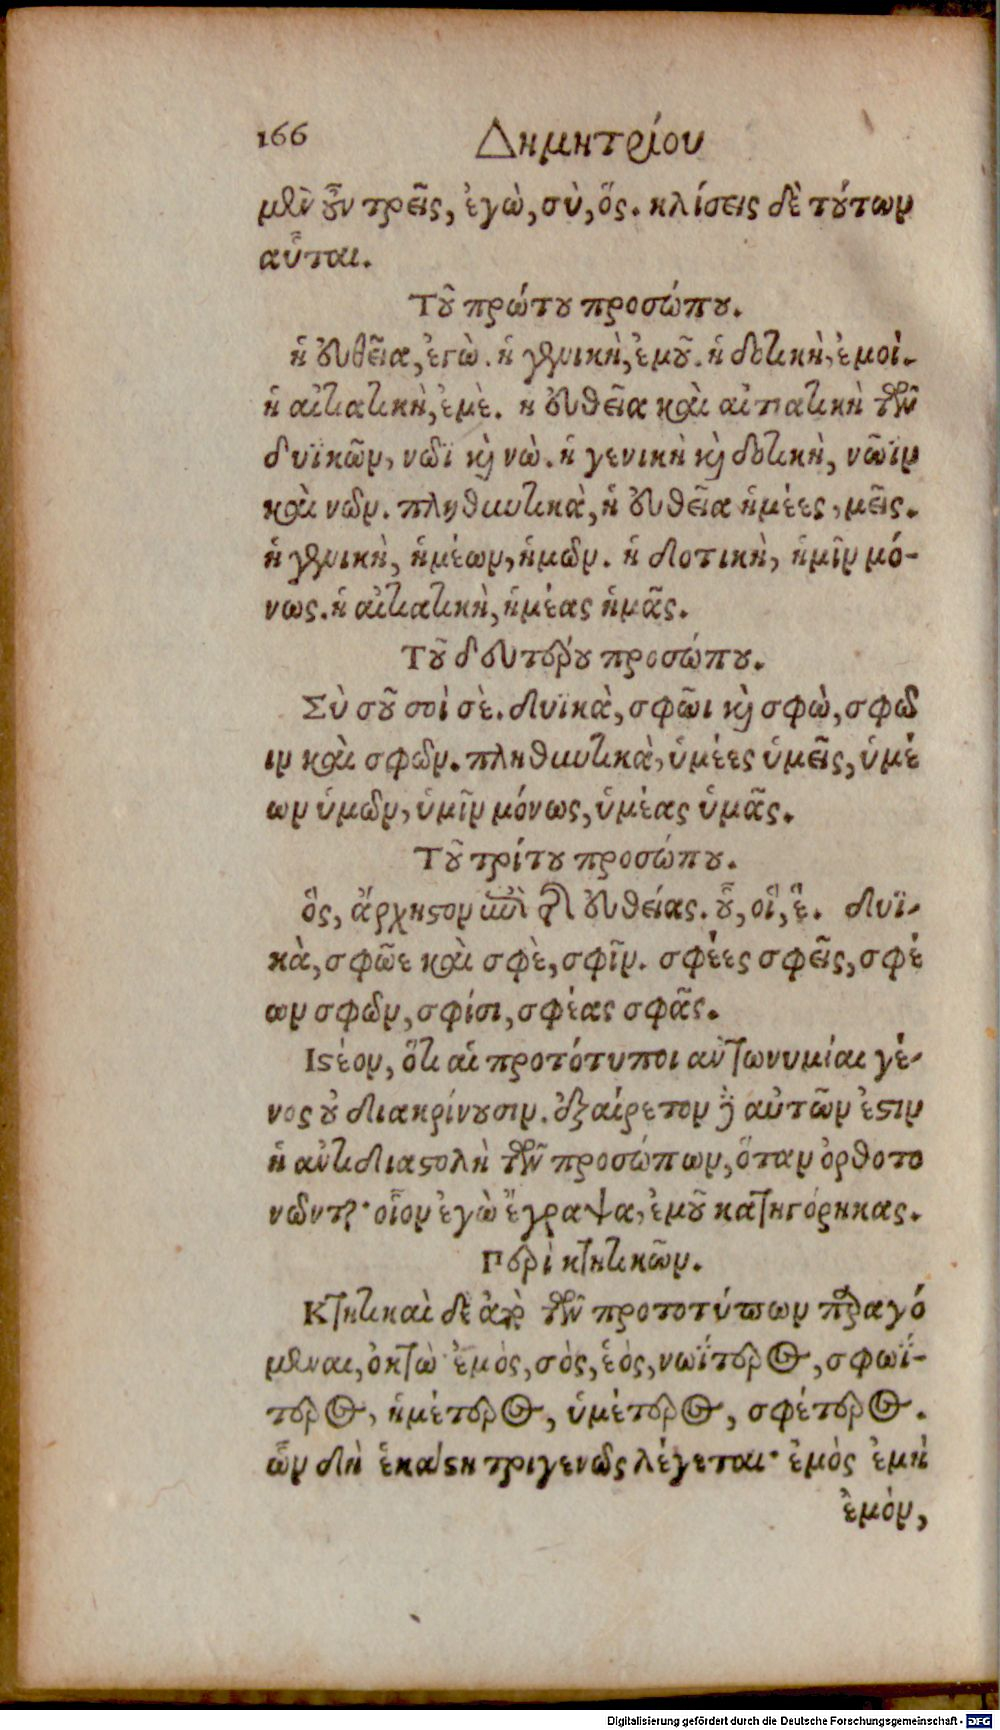 166 Δημητρίου
μὲν οὖν τρεῖς, ἐγὼ, σὺ, ὅς. κλίσεις δὲ τούτων
αὗται.
Τοῦ πρώτου προσώπου.
ἡ εὐθεῖα, ἐγὼ. ἡ γενικὴ, ἐμοῦ. ἡ δοτικὴ, ἐμοί.
ἡ αἰτιατικὴ, ἐμέ. ἡ εὐθεῖα καὶ αἰτιατικὴ τῶν
δυϊκῶν, νῶϊ καὶ νώ. ἡ γενικὴ καὶ δοτικὴ, νῶϊν
καὶ νῶν. πληθυντικὰ, ἡ εὐθεῖα ἡμέες, μεῖς.
ἡ γενικὴ, ἡμέων, ἡμῶν. ἡ δοτικὴ, ἡμῖν μό-
νως. ἡ αἰτιατικὴ, ἡμέας ἡμᾶς.
Τοῦ δευτέρου προσώπου.
Σὺ σοῦ σοὶ σέ. δυϊκὰ, σφῶι καὶ σφὼ, σφῶ
ιν καὶ σφῶν. πληθυντικὰ, ὑμέες ὑμεῖς, ὑμέ
ων ὑμῶν, ὑμῖν μόνως, ὑμέας ὑμᾶς.
Τοῦ τρίτου προσώπου.
ὃς, ἄχρηστον ἐπὶ τῆς εὐθείας. οὗ, οἷ, ἕ. δυϊ-
κὰ, σφῶε καὶ σφὲ, σφῖν. σφέες σφεῖς, σφέ
ων σφῶν, σφίσι, σφέας σφᾶς.
Ιστέον, ὅτι αἱ πρωτότυποι ἀντωνυμίαι γέ-
νος οὐ διακρίνουσιν. ἐξαίρετον δὲ αὐτῶν ἐστιν
ἡ ἀντιδιαστολὴ τῶν προσώπων, ὅταν ὀρθοτο
νῶνται· οἷον ἐγὼ ἔγραψα, ἐμοῦ κατηγόρηκας.
Περὶ κτητικῶν.
Κτητικαὶ δὲ ἀπὸ τῶν πρωτοτύπων παραγό
μεναι, ὀκτὼ ἐμὸς, σὸς, ἑὸς, νωΐτερος, σφωΐ-
τερος, ἡμέτερος, ὑμέτερος, σφέτερος.
ὧν δὴ ἑκάστη τριγενῶς λέγεται· ἐμὸς ἐμὴ
ἐμὸν,
Digitalisierung gefördert durch die Deutsche Forschungsgemeinschaft - DFG